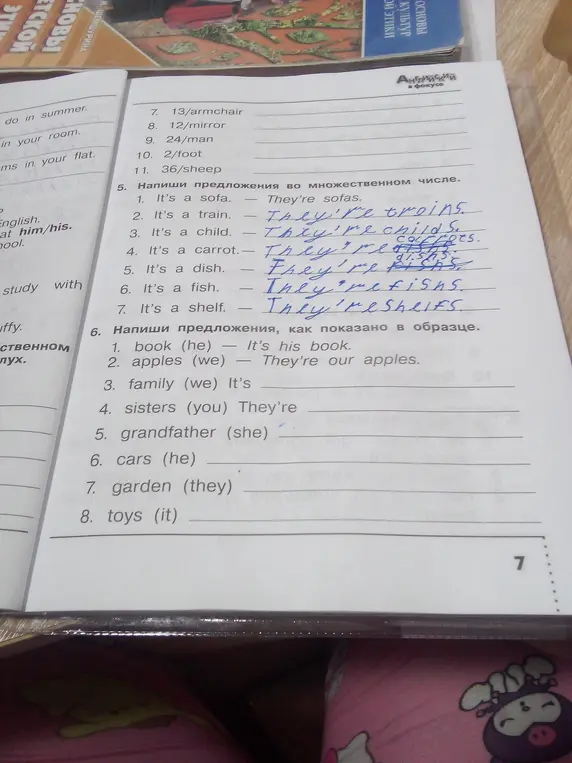 НОВЫ
ЕСКОЙ
ЭТИК
ОСНОВЫ
КУЛЬТУР
ОЙ ЭТИКИ
do in summer.
in your room.
ms in your flat.
English.
at him/his.
ool.
study with
uffy.
ственном
лух.
Английский
в фокусе
7. 13/armchair
8. 12/mirror
9. 24/man
10. 2/foot
11. 36/sheep
5. Напиши предложения во множественном числе.
1. It's a sofa. — They're sofas.
2. It's a train. — They're troins.
3. It's a child. — They're childs.
carrots.
4. It's a carrot. — They're
dishs.
5. It's a dish. — They're
6. It's a fish. — They're fishs.
7. It's a shelf. — They're shelfs.
6. Напиши предложения, как показано в образце.
1. book (he) — It's his book.
2. apples (we) — They're our apples.
3. family (we) It's
4. sisters (you) They're
5. grandfather (she)
6. cars (he)
7. garden (they)
8. toys (it)
7